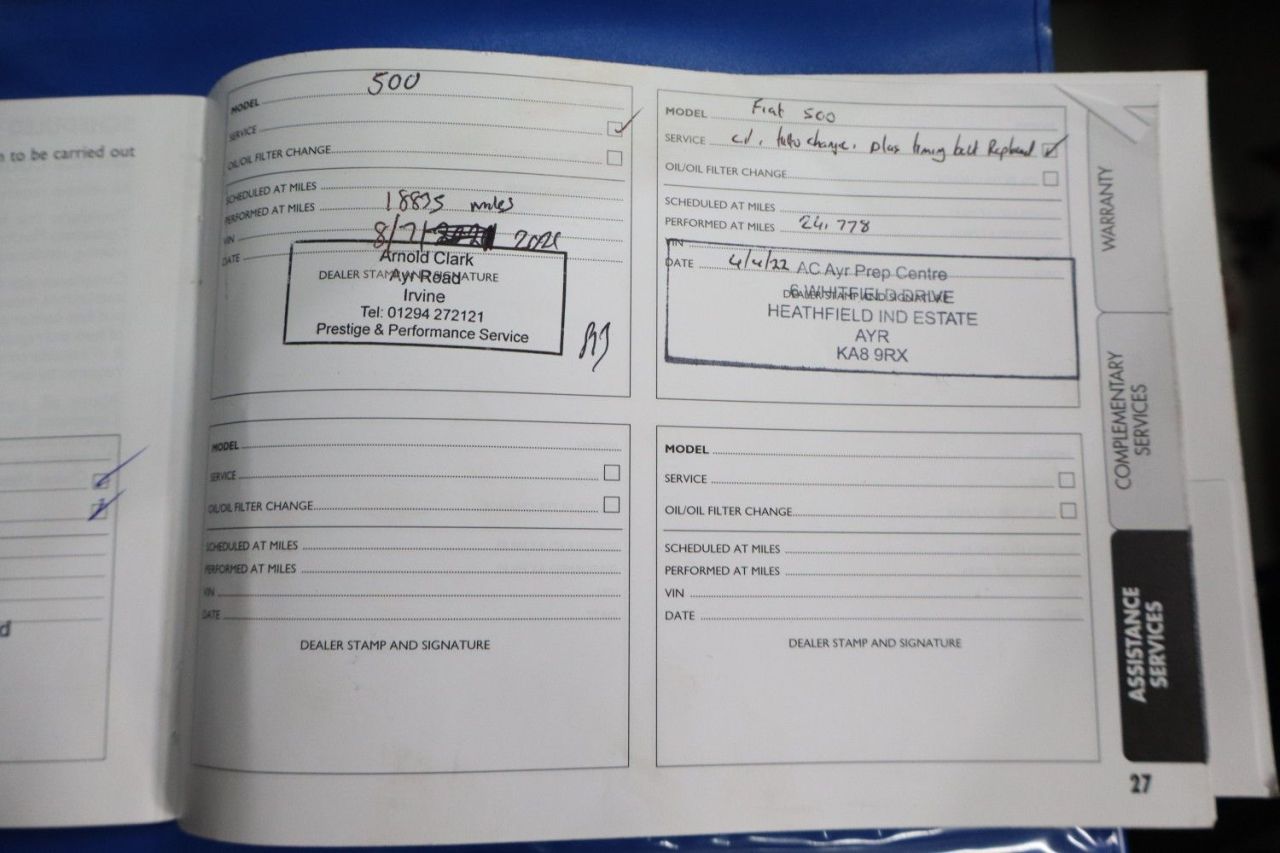 n to be carried out
d
MODEL 500
SERVICE
OIL/OIL FILTER CHANGE
SCHEDULED AT MILES
PERFORMED AT MILES 18835 miles
VIN
DATE 8/7/
Arnold Clark
DEALER STAMP AND SIGNATURE
Ayr Road
Irvine
Tel: 01294 272121
Prestige & Performance Service
MODEL Fiat 500
SERVICE change, plus timing belt Replaced
OIL/OIL FILTER CHANGE
SCHEDULED AT MILES
PERFORMED AT MILES 24,778
VIN
DATE 4/4/22
AC Ayr Prep Centre
DEALER STAMP AND SIGNATURE
6 WHITFIELD DRIVE
HEATHFIELD IND ESTATE
AYR
KA8 9RX
MODEL
SERVICE
OIL/OIL FILTER CHANGE
SCHEDULED AT MILES
PERFORMED AT MILES
VIN
DATE
DEALER STAMP AND SIGNATURE
MODEL
SERVICE
OIL/OIL FILTER CHANGE
SCHEDULED AT MILES
PERFORMED AT MILES
VIN
DATE
DEALER STAMP AND SIGNATURE
WARRANTY
COMPLEMENTARY
SERVICES
ASSISTANCE
SERVICES
27